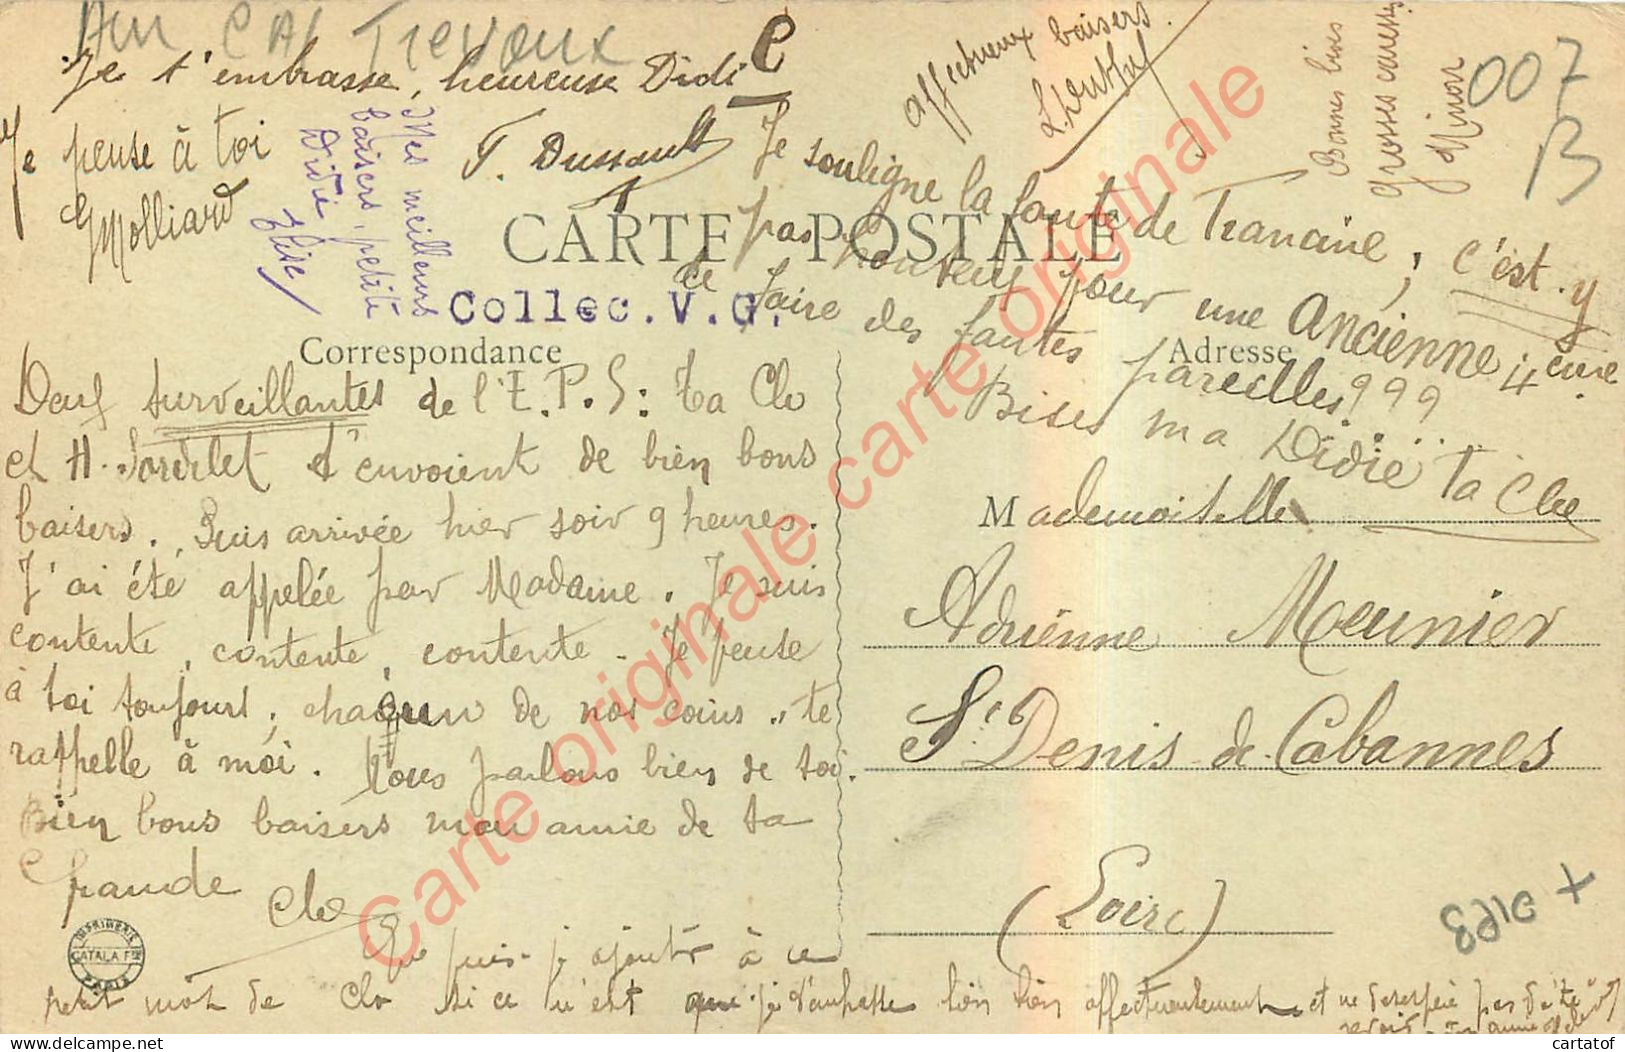 Am CAI Trevoux
Je t'embrasse, heureuse Didi
e
Je pense à toi
G Molliard
Mes meilleurs
baisers, petite
Didie
Elise
T. Dussault
affectueux baisers.
Bonnes bises
grosses caresses
Ninon
007
B
Je souligne la faute de Francine, c'est-y
pas honteux pour une Ancienne 4eme
de faire des fautes pareilles ? ? ?
Bises ma Didie Ta Clo
CARTE POSTALE
Collec. V. G.
Correspondance
Adresse
Deux surveillantes de l'E.P.S: ta Clo
et H. t'envoient de bien bons
baisers. Suis arrivée hier soir 9 heures.
J'ai été appelée par Madame. Je suis
contente, contente, contente. Je pense
à toi toujours, chacun de nos coins te
rappelle à moi. Nous parlons bien de toi.
Bien bons baisers mon amie de ta
Grande Clo
Que puis-je ajouter à ce
petit mot de Clo si ce n'est que je t'embrasse bien bien affectueusement et ne désespère pas de te
revoir
Mademoiselle
Adrienne Meunier
St Denis de Cabannes
(Loire)
IMPRIMERIE
CATALA Fres
PARIS
Carte originale carte originale carte originale
Delcampe.net
cartatof